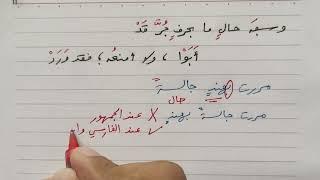 وسبقَ حالٍ ما بحرفٍ جُرَّ قَدْ
أَبَوْا ، ولا أمنعُه ؛ فقد وَرَدْ
مررت بهندٍ جالسةً
حال
مررت جالسةً بهندٍ X عند الجمهور
✓ عند الفارسي وا